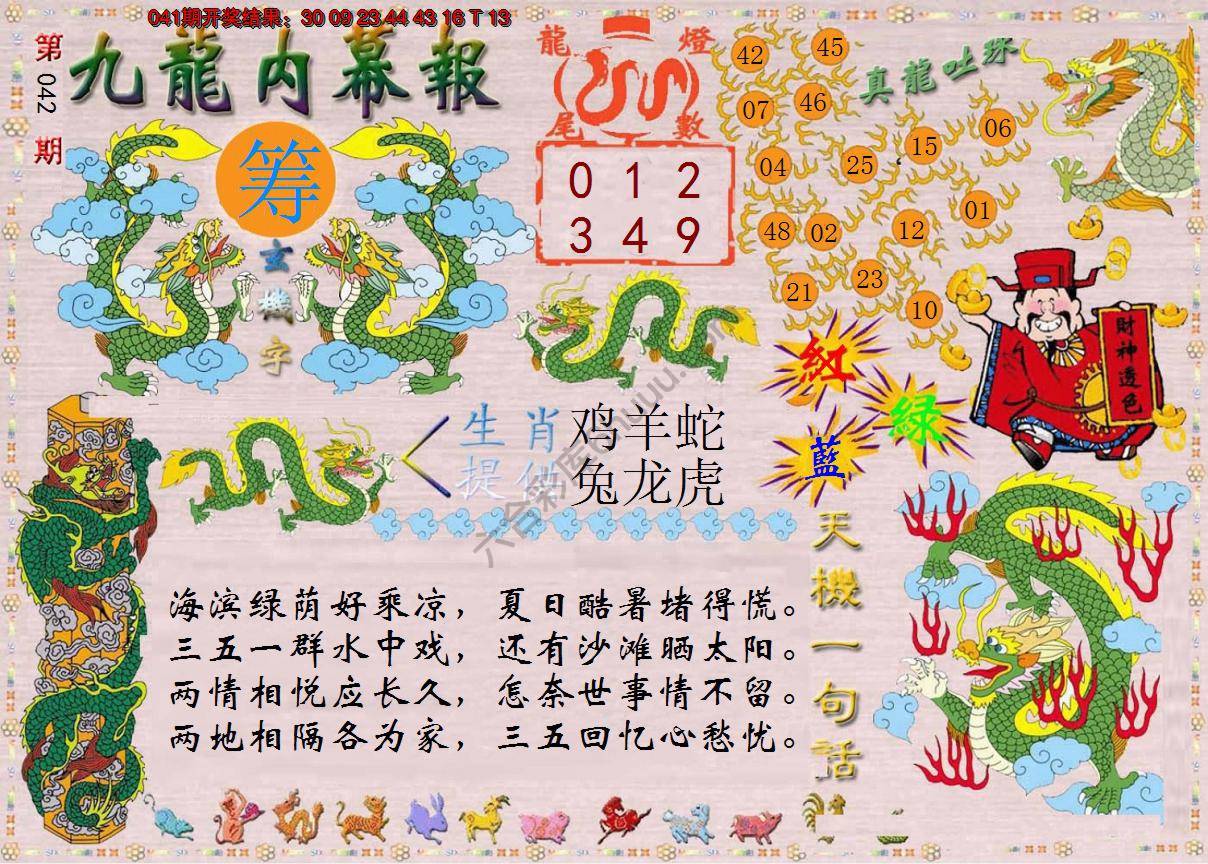 041期开奖结果：30 09 23 44 43 16 T 13
第042期
九龍内幕報
筹
玄機字
龍燈
尾數
0 1 2
3 4 9
真龍吐珠
42 45
07 46
04 25 15 06
48 02 12 01
21 23 10
財神透色
紅
綠
藍
生肖 鸡羊蛇
提供 兔龙虎
天機一句話
海滨绿荫好乘凉，夏日酷暑堵得慌。
三五一群水中戏，还有沙滩晒太阳。
两情相悦应长久，怎奈世事情不留。
两地相隔各为家，三五回忆心愁忧。